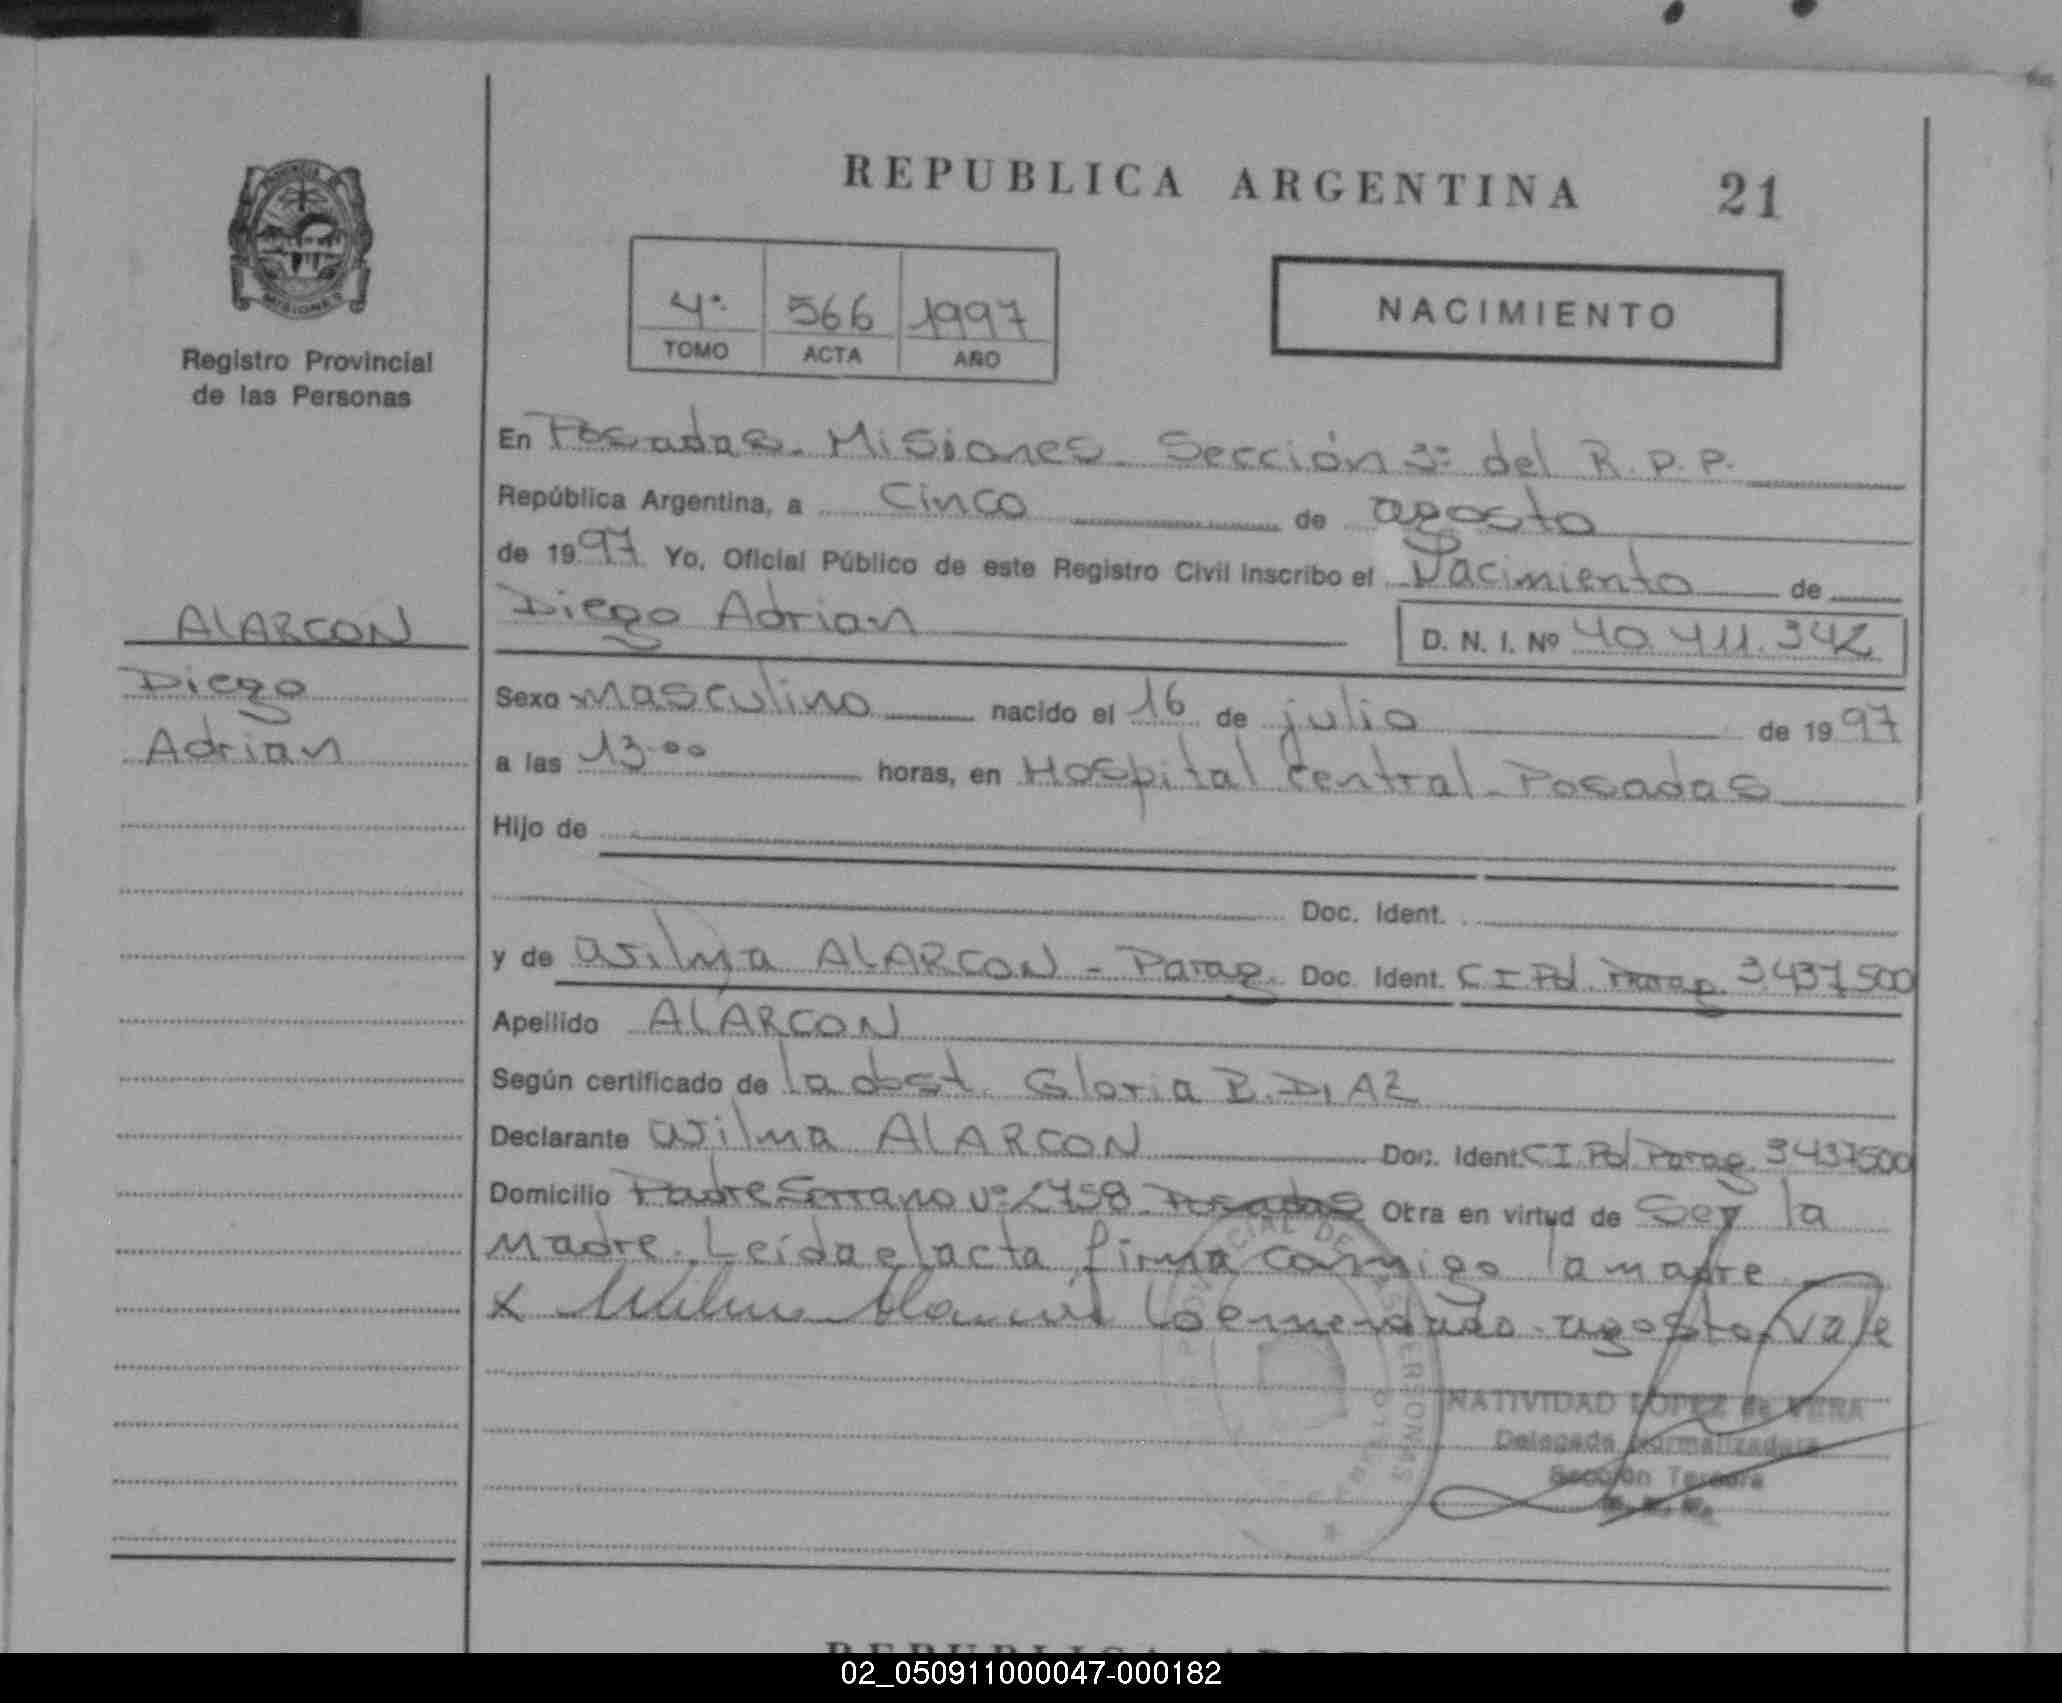 REPUBLICA ARGENTINA 21
4º 566 1997
TOMO ACTA AÑO
NACIMIENTO
MISIONES
Registro Provincial
de las Personas
ALARCON
Diego
Adrian
En Posadas - Misiones - Sección 3ª del R.P.P.
República Argentina, a Cinco de agosto
de 1997 Yo, Oficial Público de este Registro Civil inscribo el Nacimiento de
Diego Adrian D. N. I. Nº 40.411.342
Sexo masculino nacido el 16 de julio de 1997
a las 13.00 horas, en Hospital Central - Posadas
Hijo de
Doc. Ident.
y de Wilma ALARCON - Parag. Doc. Ident. C I Pol. Parag. 3437500
Apellido ALARCON
Según certificado de la obst. Gloria B. DIAZ
Declarante Wilma ALARCON Doc. Ident. C I Pol Parag. 3437500
Domicilio Padre Serrano Nº 2758 - Posadas Otra en virtud de Ser la
madre. Leída el acta, firma conmigo la madre
x Wilma Alarcon Lo enmendado - agosto, vale
NATIVIDAD LOPEZ de VERA
Delegada Normalizadora
Sección Tercera
02_050911000047-000182